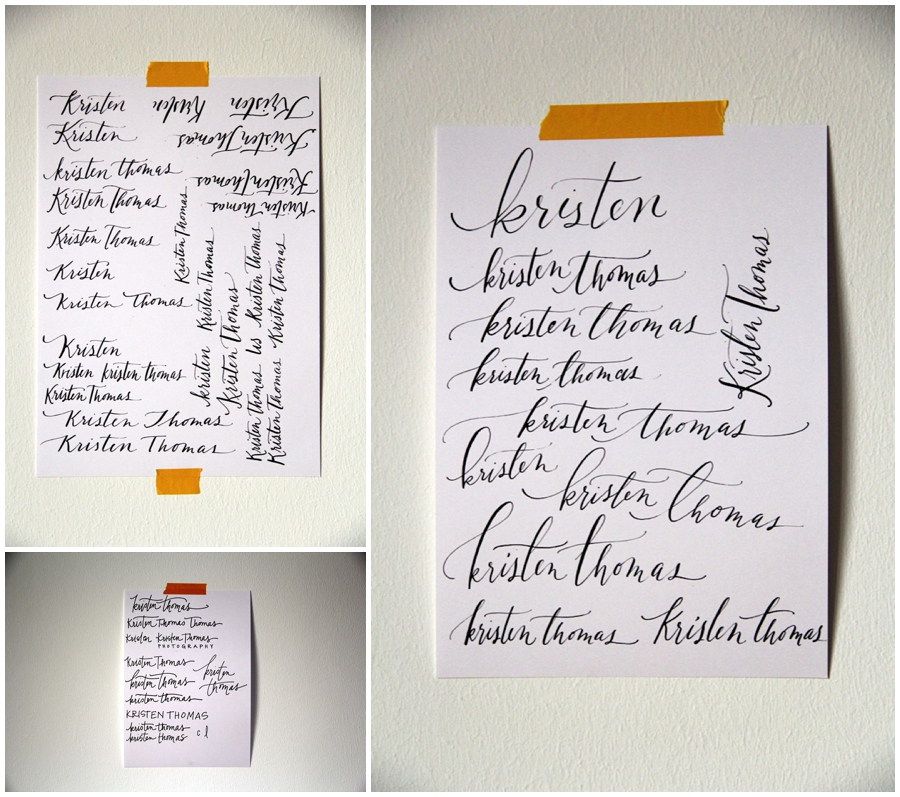 Kristen
Kristen
kristen thomas
Kristen Thomas
Kristen Thomas
Kristen
Kristen Thomas
Kristen
Kristen kristen thomas
Kristen Thomas
Kristen Thomas
Kristen Thomas
Kristen Kristen
Kristen Thomas
Kristen Thomas
Kristen Thomas
Kristen Thomas
kristen Kristen Thomas
Kristen Thomas
Kristen Thomas les Kristen Thomas
Kristen Thomas Kristen Thomas
kristen
kristen thomas
kristen thomas
kristen thomas
kristen thomas
kristen
kristen thomas
kristen thomas
kristen thomas Kristen thomas
Kristen Thomas
kristen thomas
Kristen Thomas Thomas
Kristen Kristen Thomas
PHOTOGRAPHY
Kristen Thomas
kristen thomas
kristen thomas
kristen
thomas
KRISTEN THOMAS
kristen thomas
kristen thomas